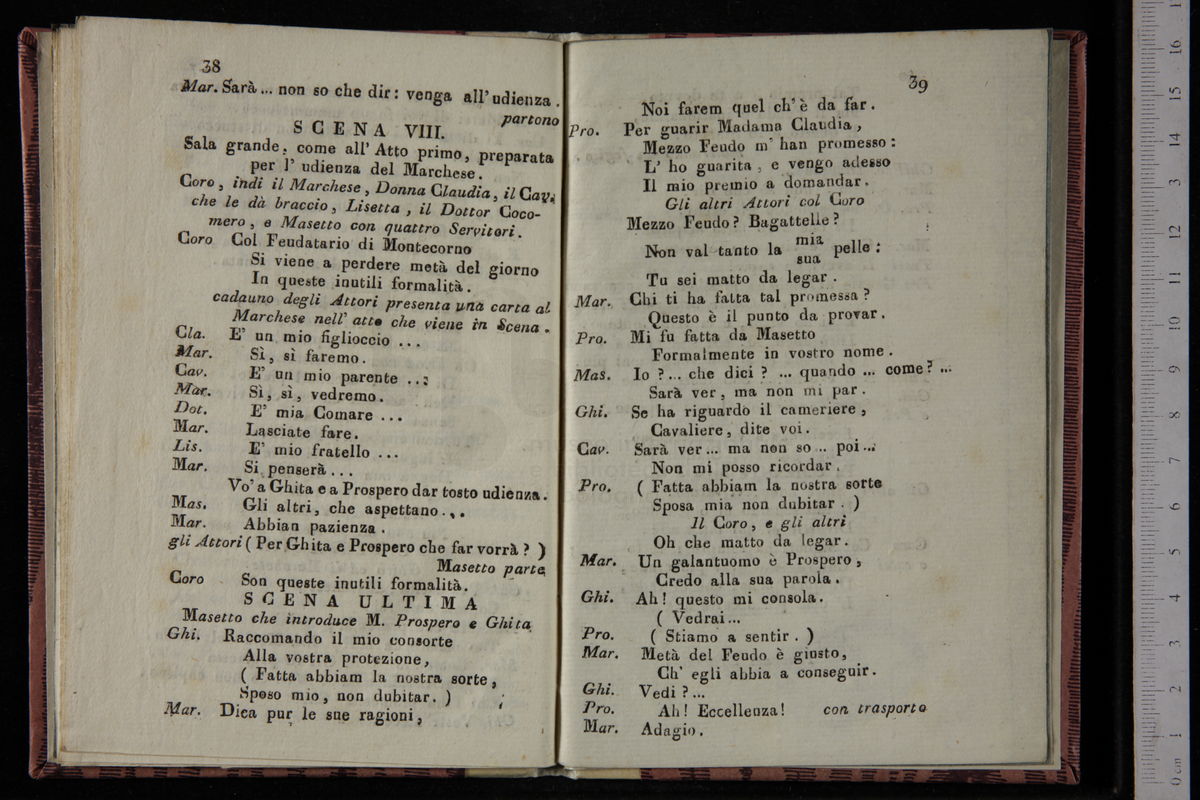 38
Mar. Sarà ... non so che dir: venga all' udienza.
partono
SCENA VIII.
Sala grande, come all' Atto primo, preparata
per l' udienza del Marchese.
Coro, indi il Marchese, Donna Claudia, il Cav.
che le dà braccio, Lisetta, il Dottor Coco-
mero, e Masetto con quattro Servitori.
Coro Col Feudatario di Montecorno
Si viene a perdere metà del giorno
In queste inutili formalità.
cadauno degli Attori presenta una carta al
Marchese nell' atto che viene in Scena.
Cla. E' un mio figlioccio ...
Mar. Sì, sì faremo.
Cav. E' un mio parente ...
Mar. Sì, sì, vedremo.
Dot. E' mia Comare ...
Mar. Lasciate fare.
Lis. E' mio fratello ...
Mar. Si penserà ...
Vo' a Ghita e a Prospero dar tosto udienza.
Mas. Gli altri, che aspettano ...
Mar. Abbian pazienza.
gli Attori ( Per Ghita e Prospero che far vorrà? )
Masetto parte.
Coro Son queste inutili formalità.
SCENA ULTIMA
Masetto che introduce M. Prospero e Ghita
Ghi. Raccomando il mio consorte
Alla vostra protezione,
( Fatta abbiam la nostra sorte,
Sposo mio, non dubitar. )
Mar. Dica pur le sue ragioni,
39
Noi farem quel ch' è da far.
Pro. Per guarir Madama Claudia,
Mezzo Feudo m' han promesso:
L' ho guarita, e vengo adesso
Il mio premio a domandar.
Gli altri Attori col Coro
Mezzo Feudo? Bagattelle?
Non val tanto la mia pelle:
sua
Tu sei matto da legar.
Mar. Chi ti ha fatta tal promessa?
Questo è il punto da provar.
Pro. Mi fu fatta da Masetto
Formalmente in vostro nome.
Mas. Io ?... che dici ? ... quando ... come? ...
Sarà ver, ma non mi par.
Ghi. Se ha riguardo il cameriere,
Cavaliere, dite voi.
Cav. Sarà ver ... ma non so .. poi ...
Non mi posso ricordar.
Pro. ( Fatta abbiam la nostra sorte
Sposa mia non dubitar. )
Il Coro, e gli altri
Oh che matto da legar.
Mar. Un galantuomo è Prospero,
Credo alla sua parola.
Ghi. Ah! questo mi consola.
( Vedrai ...
Pro. ( Stiamo a sentir. )
Mar. Metà del Feudo è giusto,
Ch' egli abbia a conseguir.
Ghi. Vedi ? ...
Pro. Ah! Eccellenza! con trasporto
Mar. Adagio.
0 cm 1 2 3 4 5 6 7 8 9 10 11 12 13 14 15 16